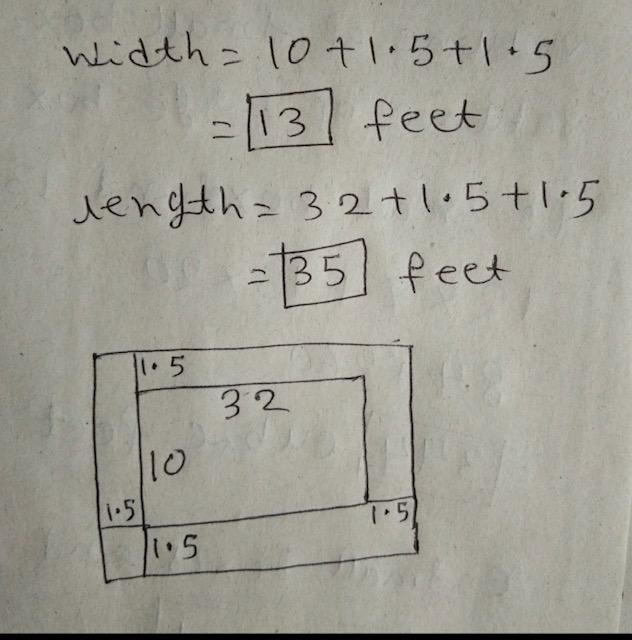 Width = 10 + 1.5 + 1.5
= 13 feet
length = 32 + 1.5 + 1.5
= 35 feet
1.5
32
10
1.5
1.5
1.5